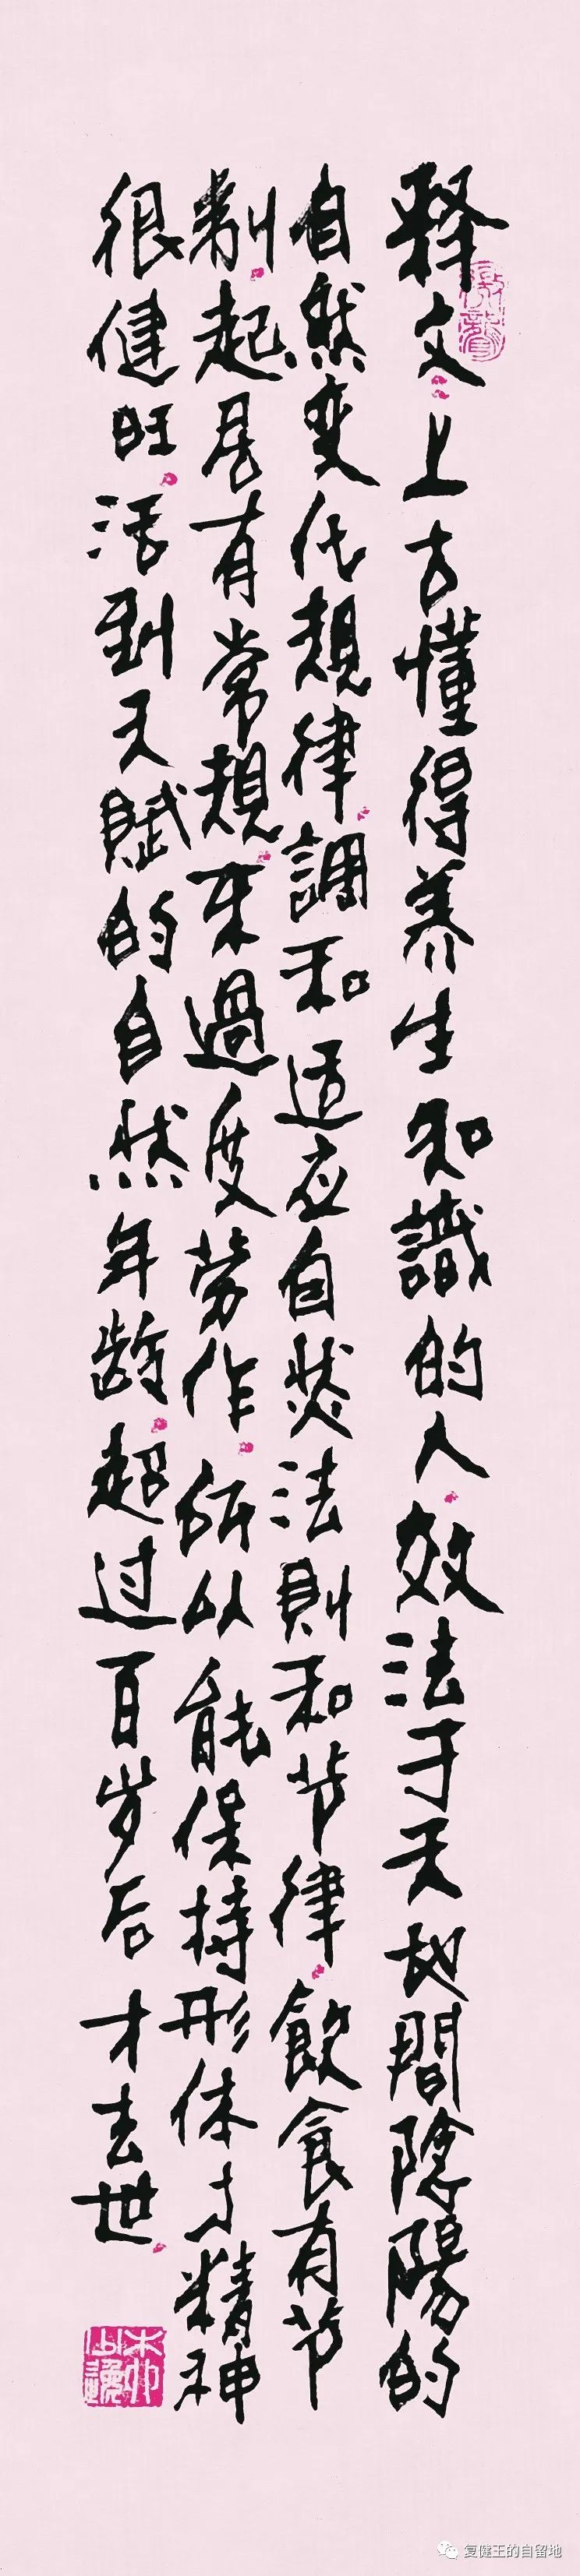 释文：上古懂得养生知識的人，效法于天地間陰陽的
自然变化規律，調和适应自然法則和节律，飲食有节
制，起居有常規，不过度劳作，所以能保持形体与精神
很健旺，活到天賦的自然年龄，超过百岁后才去世。
复健王的自留地